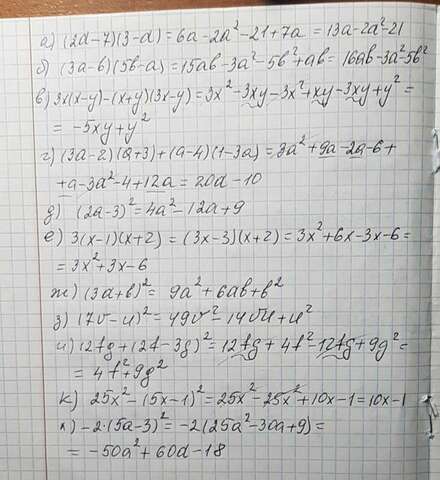 а) (2a-7)(3-a)=6a-2a²-21+7a=13a-2a²-21
б) (3a-b)(5b-a)=15ab-3a²-5b²+ab=16ab-3a²-5b²
в) 3x(x-y)-(x+y)(3x-y)=3x²-3xy-3x²+xy-3xy+y²=
=-5xy+y²
г) (3a-2)(a+3)+(a-4)(1-3a)=3a²+9a-2a-6+
+a-3a²-4+12a=20a-10
д) (2a-3)²=4a²-12a+9
е) 3(x-1)(x+2)=(3x-3)(x+2)=3x²+6x-3x-6=
=3x²+3x-6
ж) (3a+b)²=9a²+6ab+b²
з) (7v-u)²=49v²-14vu+u²
и) 12fg+(2f-3g)²=12fg+4f²-12fg+9g²=
=4f²+9g²
к) 25x²-(5x-1)²=25x²-25x²+10x-1=10x-1
л) -2·(5a-3)²=-2(25a²-30a+9)=
=-50a²+60a-18